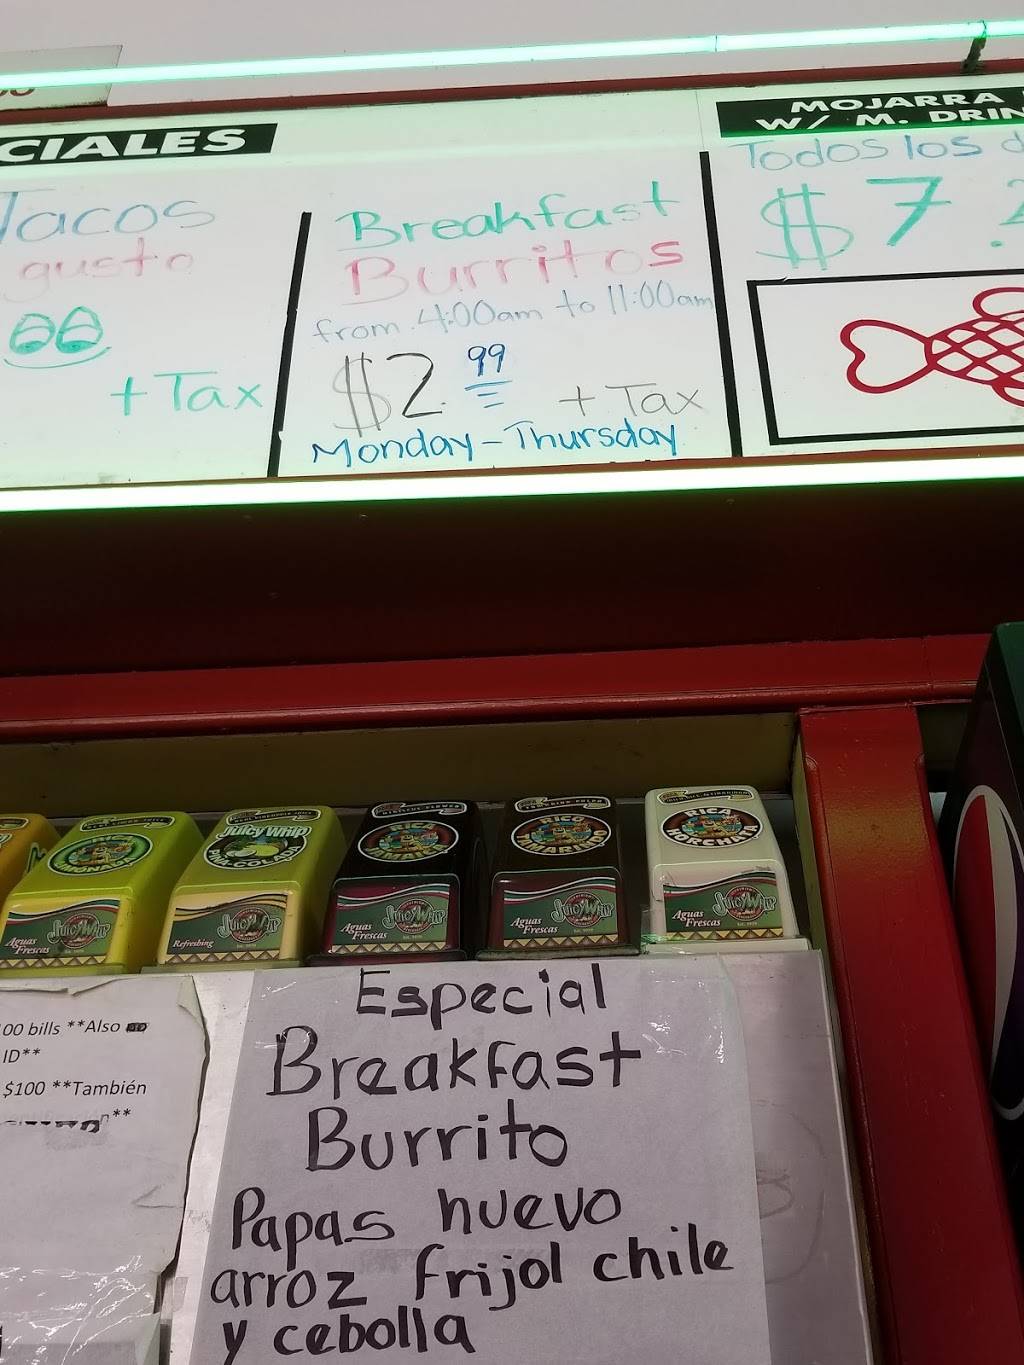 CIALES
Tacos
gusto
+ Tax
Breakfast
Burritos
from 4:00am to 11:00am
$2.99 + Tax
Monday - Thursday
MOJARRA
W/ M. DRIN
Todos los d
$7.2
RICA
LIMONADA
JUICY WHIP
PIÑA-COLADA
HIBISCUS FLOWER
RICA
JAMAICA
RICO
TAMARINDO
RICA
HORCHATA
Aguas Frescas JUICY WHIP
Refreshing JUICY WHIP
Aguas Frescas JUICY WHIP
Aguas Frescas JUICY WHIP
Aguas Frescas JUICY WHIP
00 bills **Also no
ID**
$100 **También
n**
Especial
Breakfast
Burrito
Papas huevo
arroz frijol chile
y cebolla